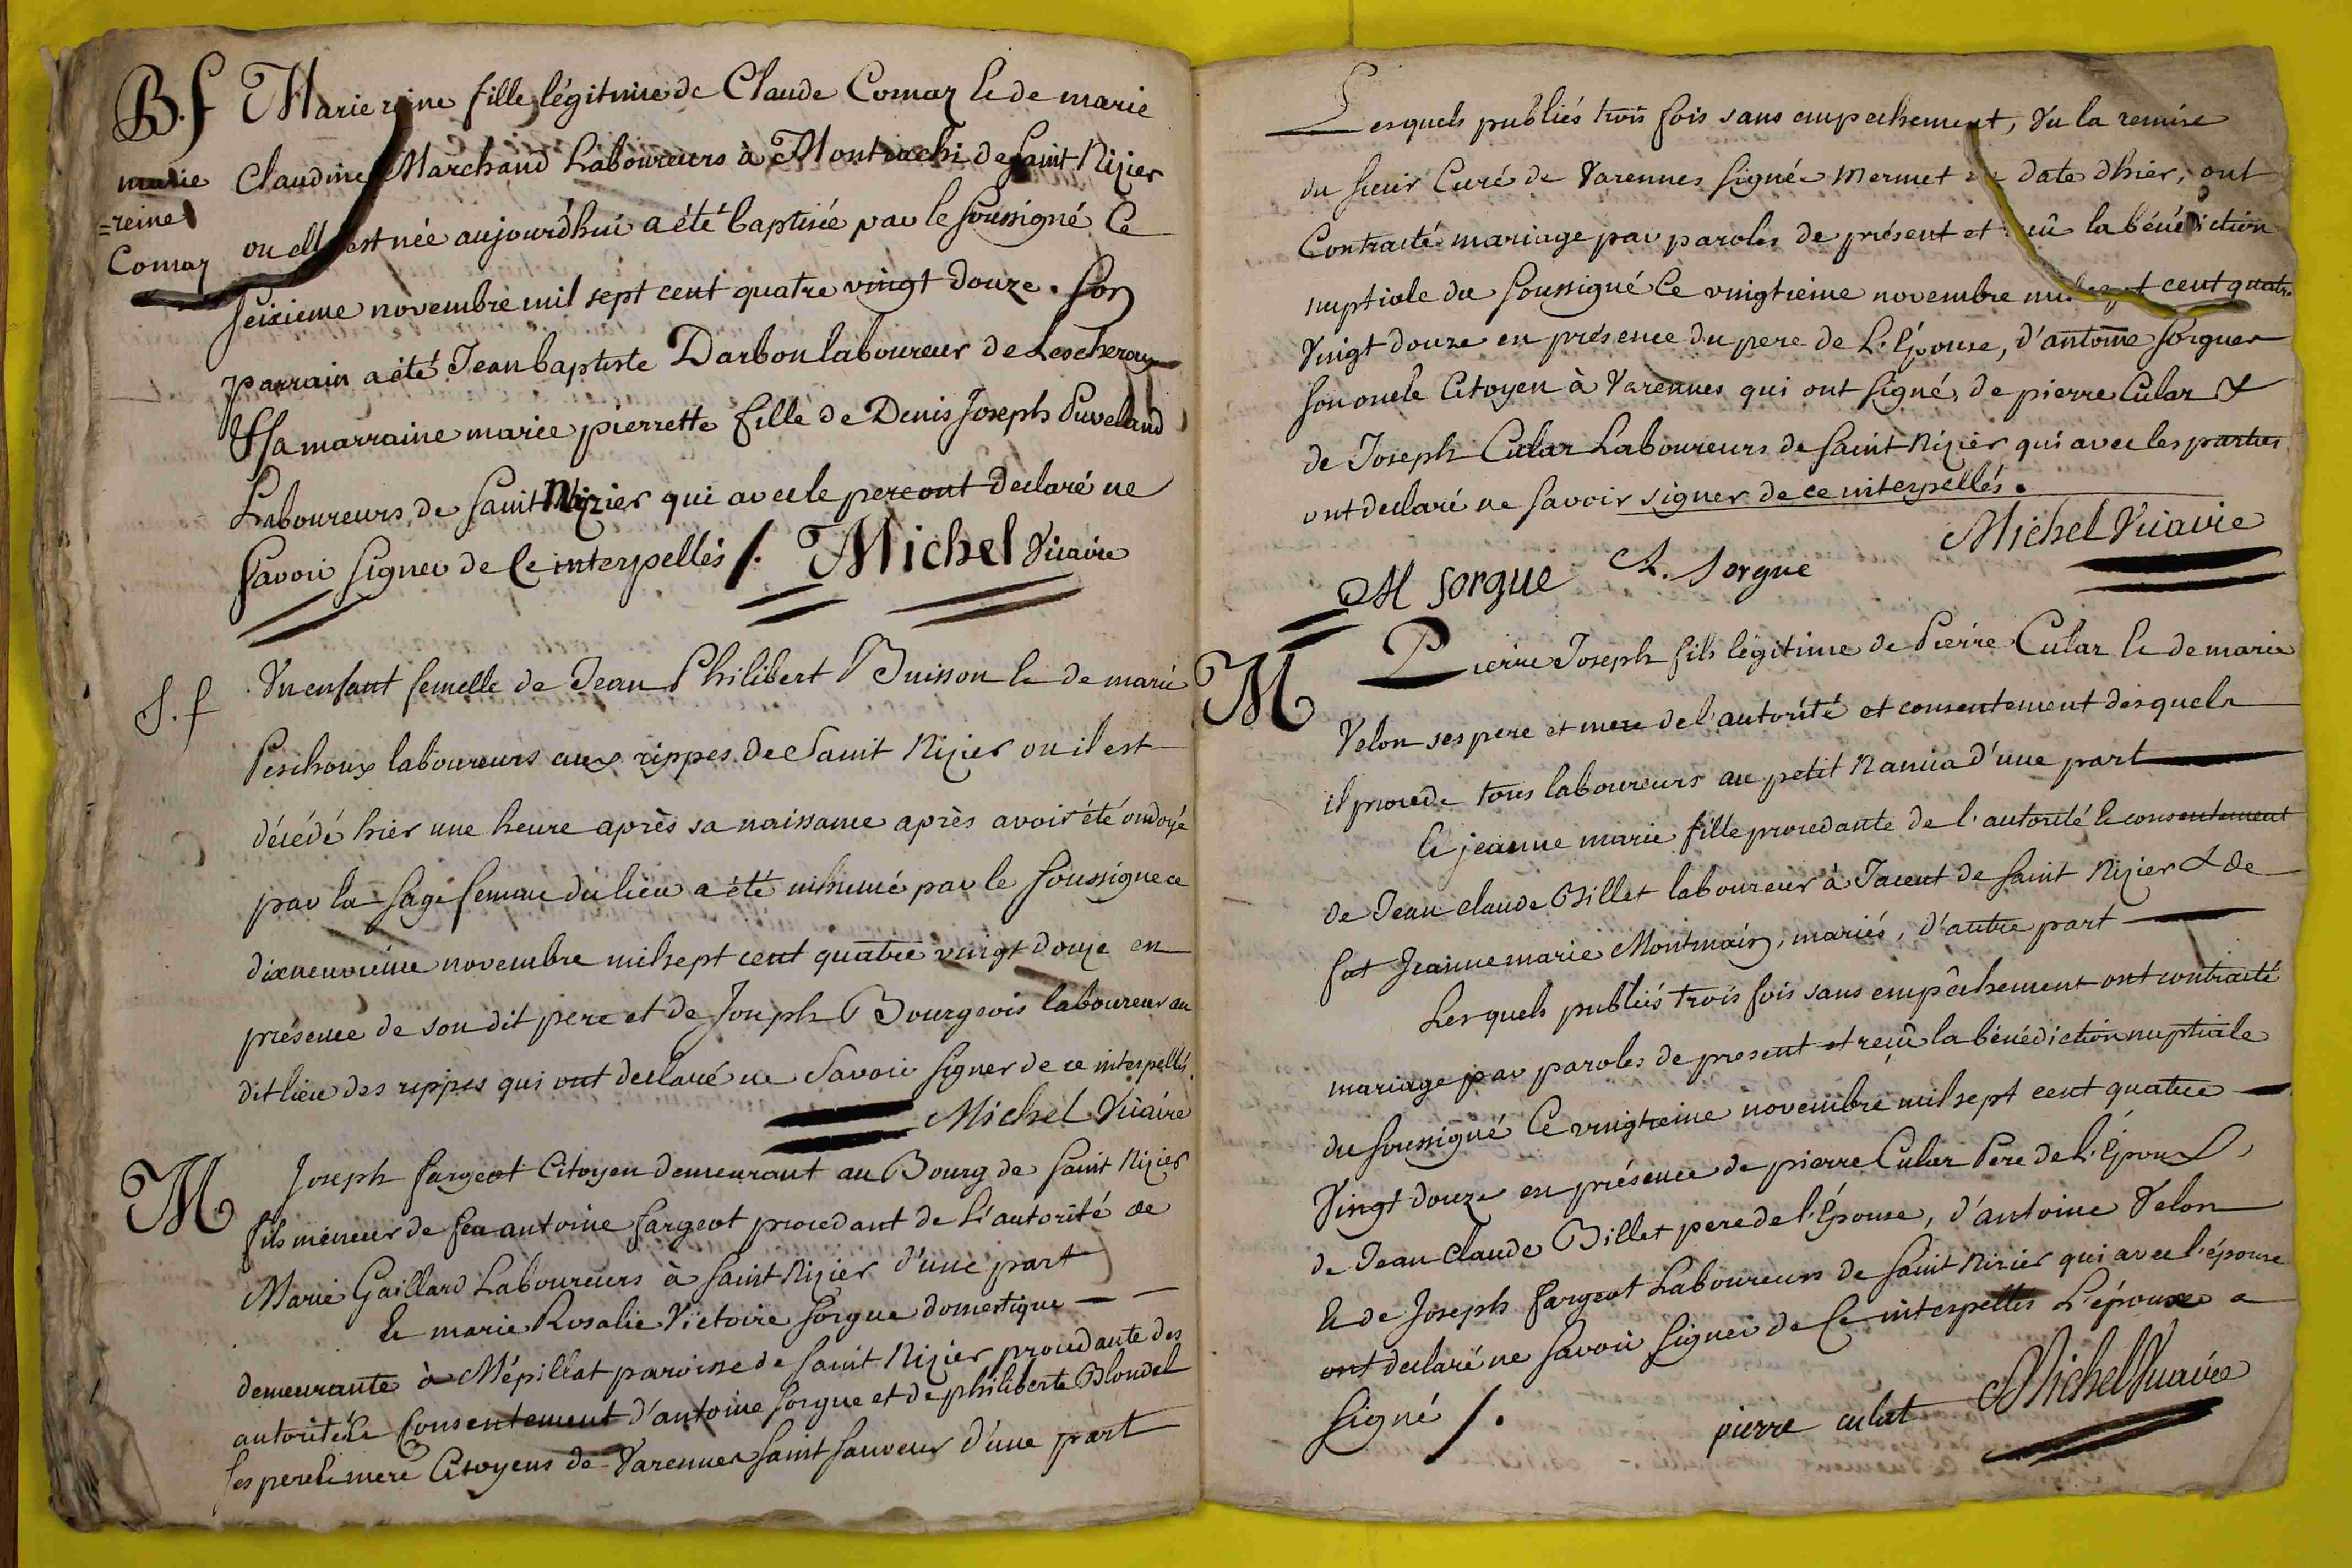 B.f Marie reine fille légitime de Claude Comaz & de marie
marie Claudine Marchand Laboureurs à Montrachi de Saint Nizier
=reine ou elle est née aujourd'hui a été baptisée par le soussigné Ce
Comaz Seizieme novembre mil sept cent quatre vingt douze. Son
parrain a été Jean baptiste Darbon laboureur de Lescheroux
& sa marraine marie pierrette fille de Denis Joseph Puveland
Laboureurs de Saint Nizier qui avec le pere ont declaré ne
Savoir signer de Ce interpellés /. Michel Vicaire
S.f Un enfant femelle de Jean Philibert Buisson & de marie
Peschoux laboureurs aux rippes de Saint Nizier ou il est
décédé hier une heure après sa naissance après avoir été ondoyé
par la sage femme du lieu a été inhumé par le soussigné ce
dixneuvieme novembre mil sept cent quatre vingt douze en
présence de son dit pere et de Joseph Bourgeois laboureur au
dit lieu des rippes qui ont declaré ne Savoir signer de ce interpellés.
Michel Vicaire
M Joseph fargeot Citoyen demeurant au Bourg de Saint Nizier
fils mineur de feu antoine fargeot procedant de L'autorité de
Marie Gaillard Laboureurs à Saint Nizier d'une part
& marie Rosalie Victoire Sorgue domestique
demeurante à Mépillat paroisse de Saint Nizier procedante des
autorité & Consentement d'antoine Sorgue et de philiberte Blondel
ses pere & mere Citoyens de Varennes Saint Sauveur d'une part
Lesquels publiés trois fois sans empechement, Vu la remise
du Sieur Curé de Varennes Signée Mermet date d'hier, ont
Contracté mariage par paroles de présent et reçû la bénédiction
nuptiale du Soussigné Ce vingtieme novembre mil sept cent quatre
Vingt douze en présence du pere de L'Épouse, d'antoine Sorgues
Son oncle Citoyen à Varennes qui ont signé, de pierre Cular &
de Joseph Cular Laboureurs de Saint Nizier qui avec les parties
ont declaré ne savoir signer de ce interpellés.
Michel Vicaire
M Sorgue A. Sorgue
M Pierre Joseph fils légitime de Pierre Cular & de marie
Velon ses pere et mere de l'autorité et consentement desquels
il procede tous laboureurs au petit Nanuia d'une part
& jeanne marie fille procedante de l'autorité & consentement
de Jean claude Billet laboureur à Tacent de Saint Nizier & de
fut Jeanne marie Montmain, mariés, d'autre part
Lesquels publiés trois fois sans empêchement ont contracté
mariage par paroles de present et reçû la bénédiction nuptiale
du soussigné Ce vingtieme novembre mil sept cent quatre
Vingt douze en présence de pierre Cular Pere de L'Époux,
de Jean Claude Billet pere de l'Épouse, d'antoine Velon
& de Joseph fargeot Laboureurs de Saint Nizier qui avec l'épouse
ont declaré ne savoir signer de Ce interpellés L'époux a
signé /. pierre culat Michel Vicaire